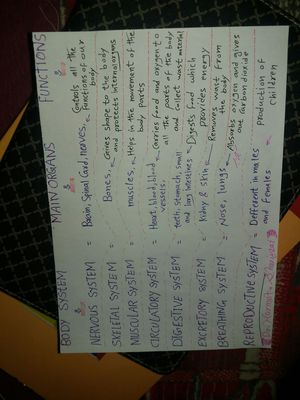 BODY SYSTEM MAIN ORGANS FUNCTIONS
NERVOUS SYSTEM = Brain, Spinal Cord, nerves, Controls all the
functions of our
body
SKELETAL SYSTEM = Bones, Gives shape to the body
and protects internal organs
MUSCULAR SYSTEM = muscles, Helps in the movement of the
body parts
CIRCULATORY SYSTEM = Heart, blood, blood Carries food and oxygen to
vessels. all the parts of the body
and collect wast material
DIGESTIVE SYSTEM = teeth, stomach, small Digests food which
and large intestines provides energy
EXCRETORY SYSTEM = Kidney & skin Removes wast from
the body
BREATHING SYSTEM = Nose, lungs Absorbs oxygen and gives
out carbon dioxide
REPRODUCTIVE SYSTEM = Different in males production of
and Females children